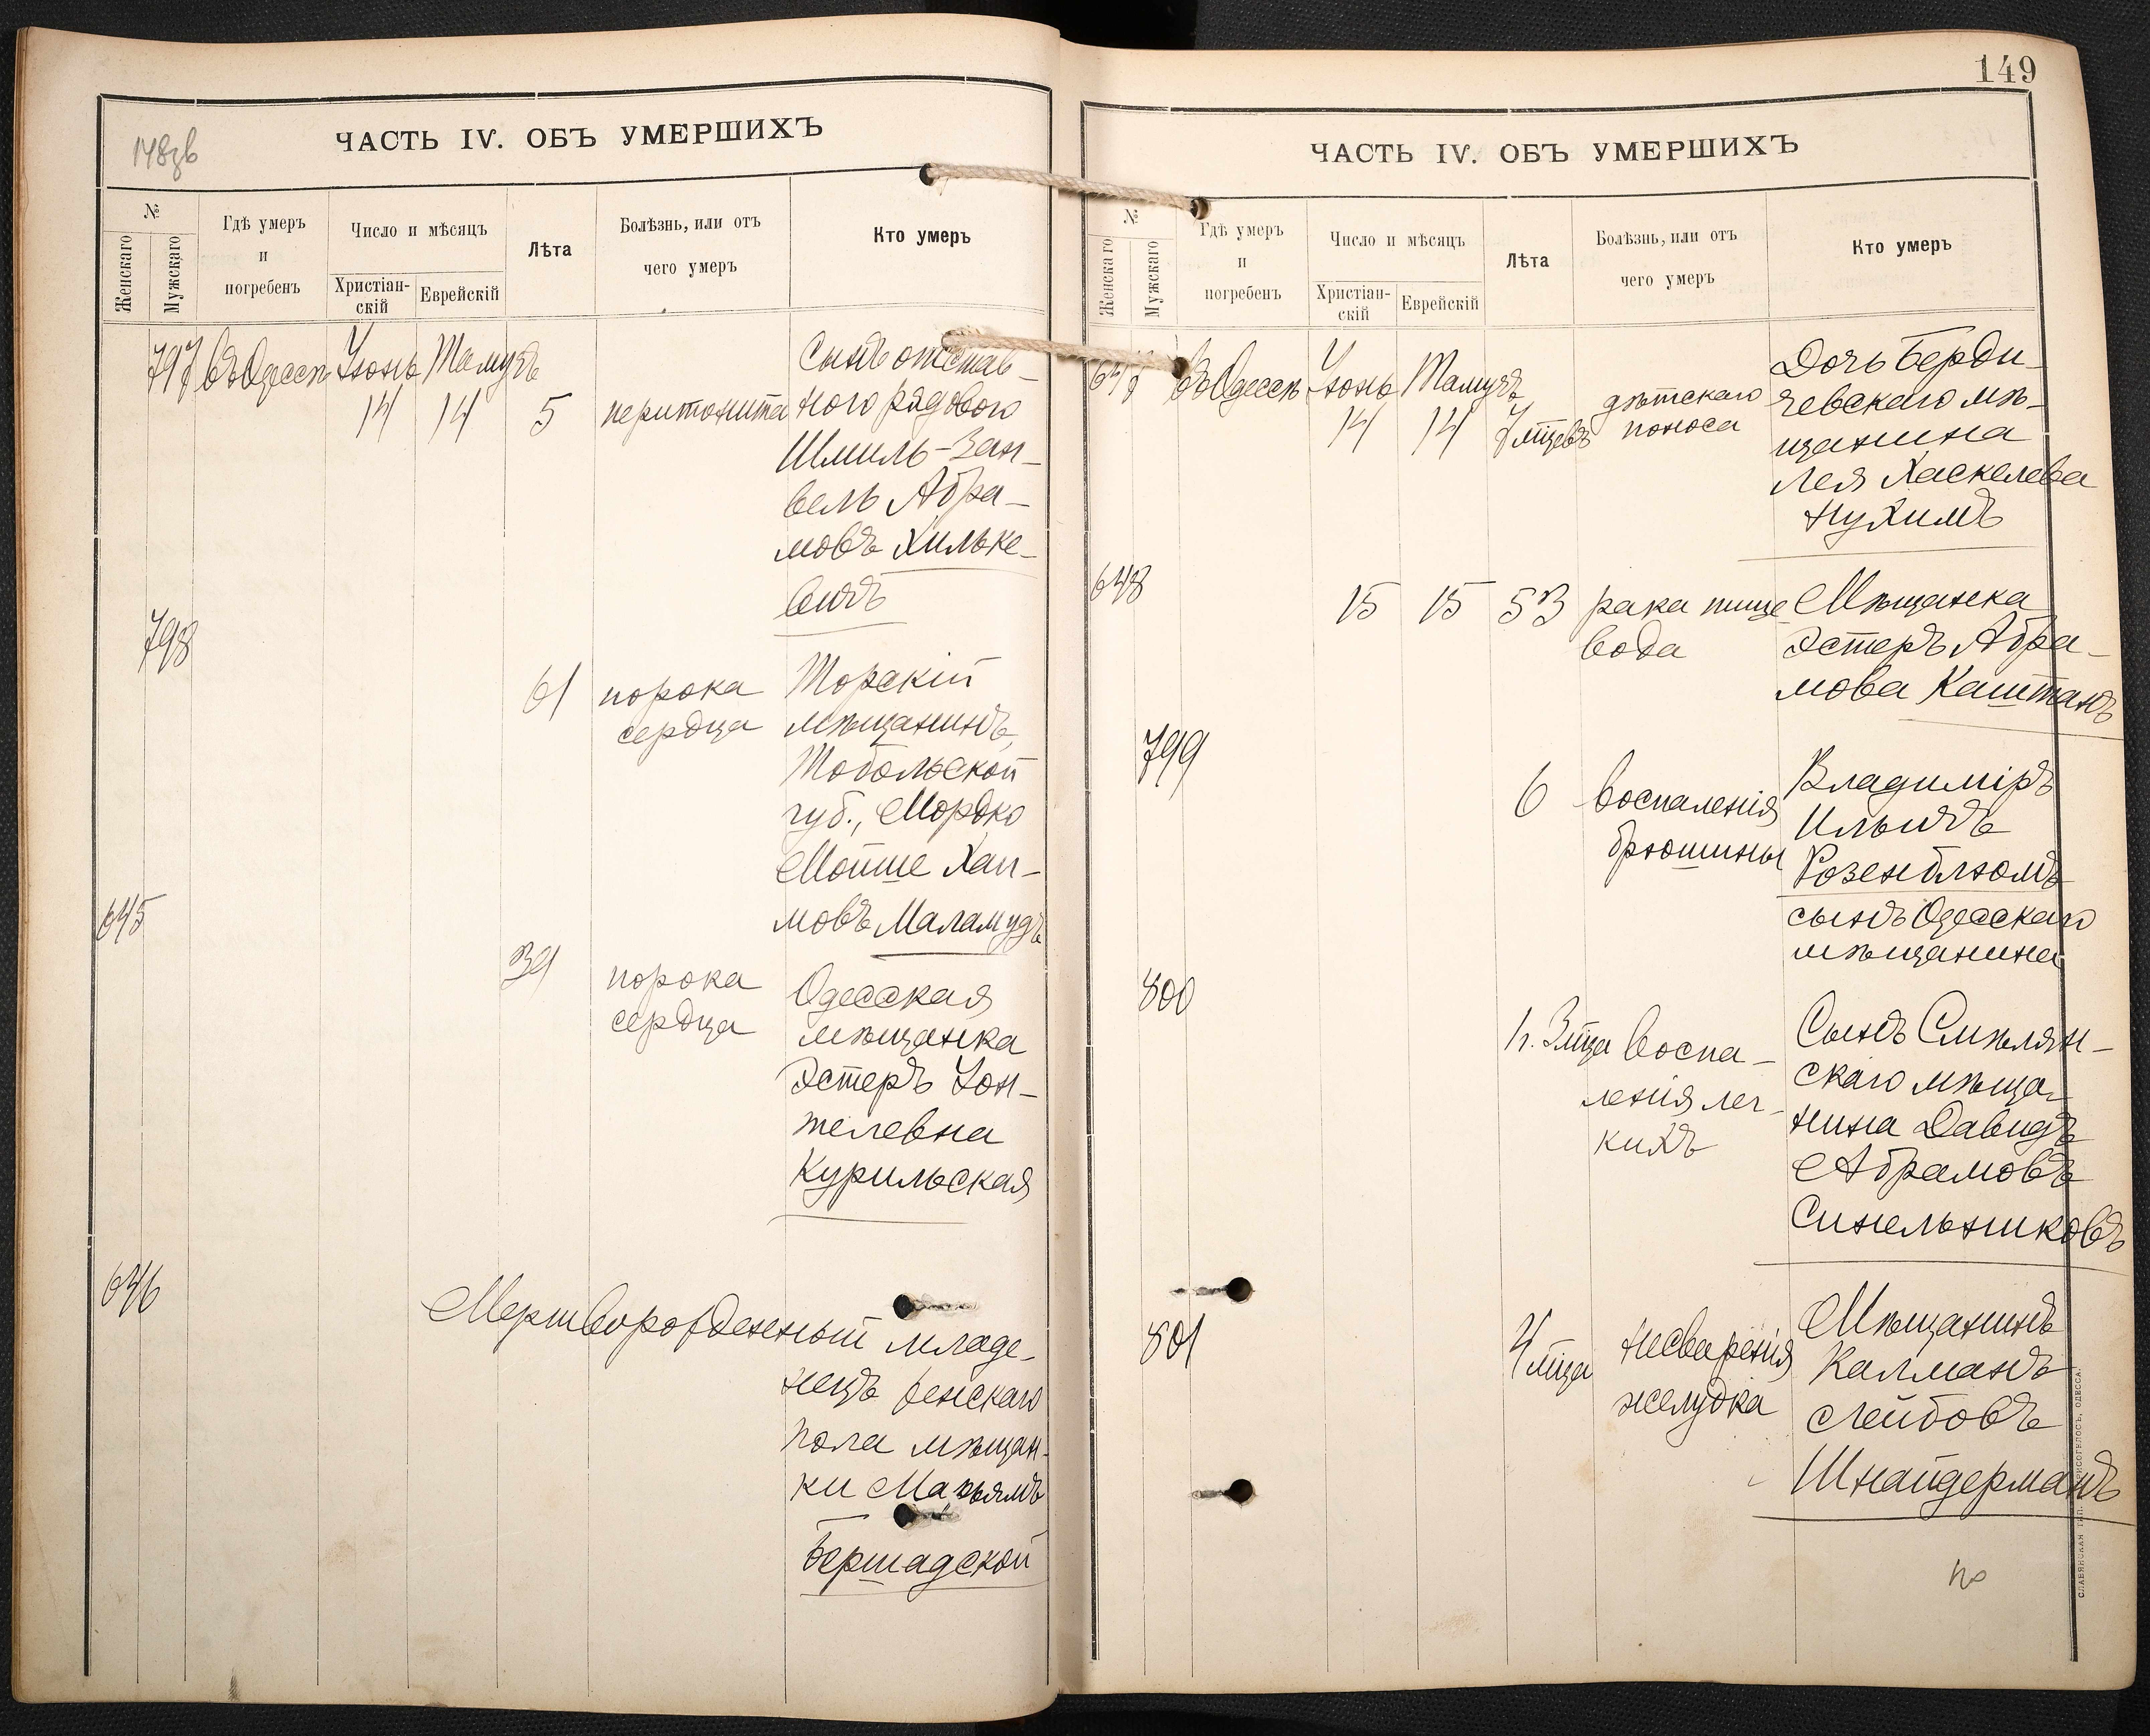 148зв
ЧАСТЬ IV. ОБЪ УМЕРШИХЪ
№
Женскаго
Мужскаго
Гдѣ умеръ
и
погребенъ
Число и мѣсяцъ
Христіан-
скій
Еврейскій
Лѣта
Болѣзнь, или отъ
чего умеръ
Кто умеръ
797 въ Одессѣ Іюнь Тамузъ
14 14 5 перитонита
Сынъ отстав-
ного рядового
Шмиль-Зан-
вель Абра-
мовъ Хильке-
вичъ
798
61 порока
сердца
Торскій
мѣщанинъ,
Тобольской
губ., Мордко
Мойше Хаи-
мовъ Маламудъ
645
39 порока
сердца
Одесская
мѣщанка
Эстеръ Іон-
телевна
Курильская
646
Мертворожденный младе-
нецъ женскаго
пола мѣщан-
ки Марьямъ
Бершадской
149
ЧАСТЬ IV. ОБЪ УМЕРШИХЪ
№
Женскаго
Мужскаго
Гдѣ умеръ
и
погребенъ
Число и мѣсяцъ
Христіан-
скій
Еврейскій
Лѣта
Болѣзнь, или отъ
чего умеръ
Кто умеръ
647 въ Одессѣ Іюнь Тамузъ
14 14 7 мѣцевъ
дѣтскаго
поноса
Дочь Берди-
чевскаго мѣ-
щанина
Лея Хаскелева
Нухимъ
648
15 15 53 рака пище
вода
Мѣщанка
Эстеръ Абра-
мова Каштанъ
799
6 воспаленія
брюшины
Владиміръ
Ильичъ
Розенблюмъ
сынъ Одесскаго
мѣщанина
800
1 г. 3 мѣца воспа-
ленія лег-
кихъ
Сынъ Смѣлян-
скаго мѣща-
нина Давидъ
Абрамовъ
Синельниковъ
801
4 мѣца несваренія
желудка
Мѣщанинъ
Калманъ
Лейбовъ
Шнайдерманъ
СЛАВЯНСКАЯ ТИП. Н. ХРИСОГЕЛОСЪ, ОДЕССА.